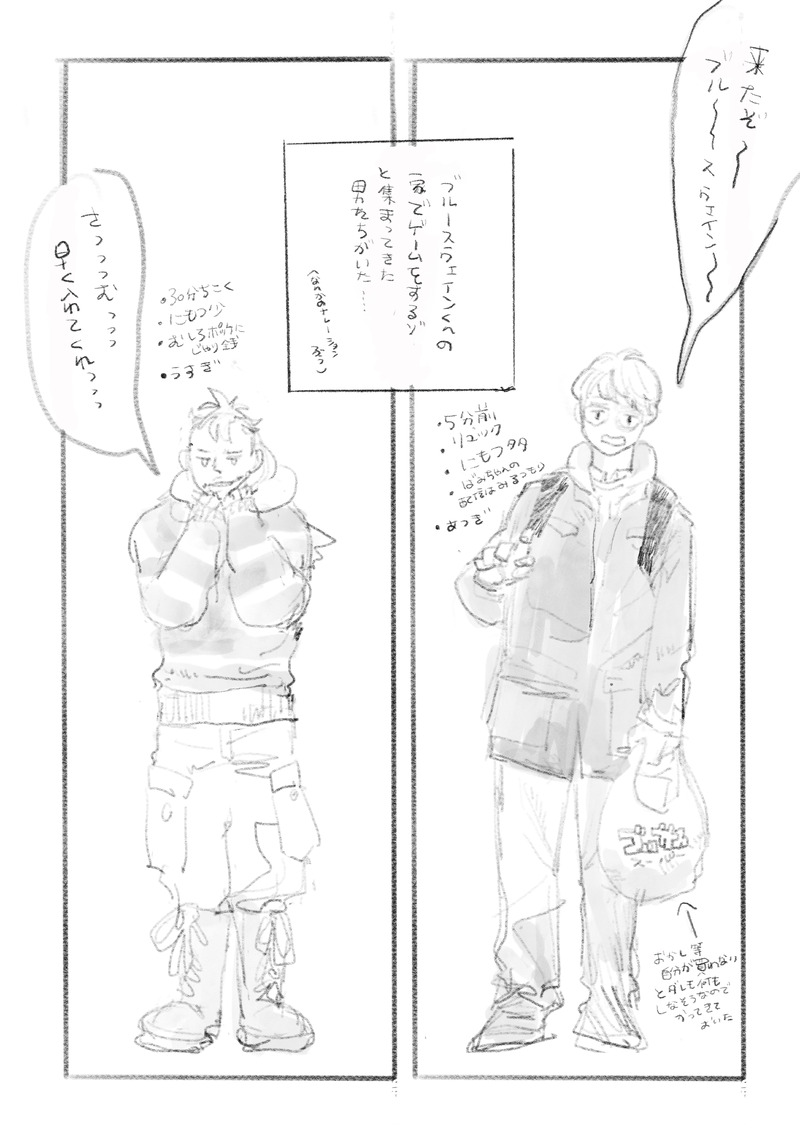 来たぞ〜
ブル〜〜スウェイン〜
ブルースウェインくんの
家でゲームをするゾ
と集まってきた
男たちがいた……
(なのかのナレーション
ふうっ)
・5分前
・リュック
・にもつ多タ
・ばみちゃんの
配信はみるつもり
・あつぎ
さっっっむっっ
早く入れてくれっっっ
・30分ちこく
・にもつ少
・むしろポッケに
じゃり銭
・うすぎ
ゴッサム
スーパー
おかし等
自分が買わない
とダレも何も
しなそうなので
かってきて
おいた